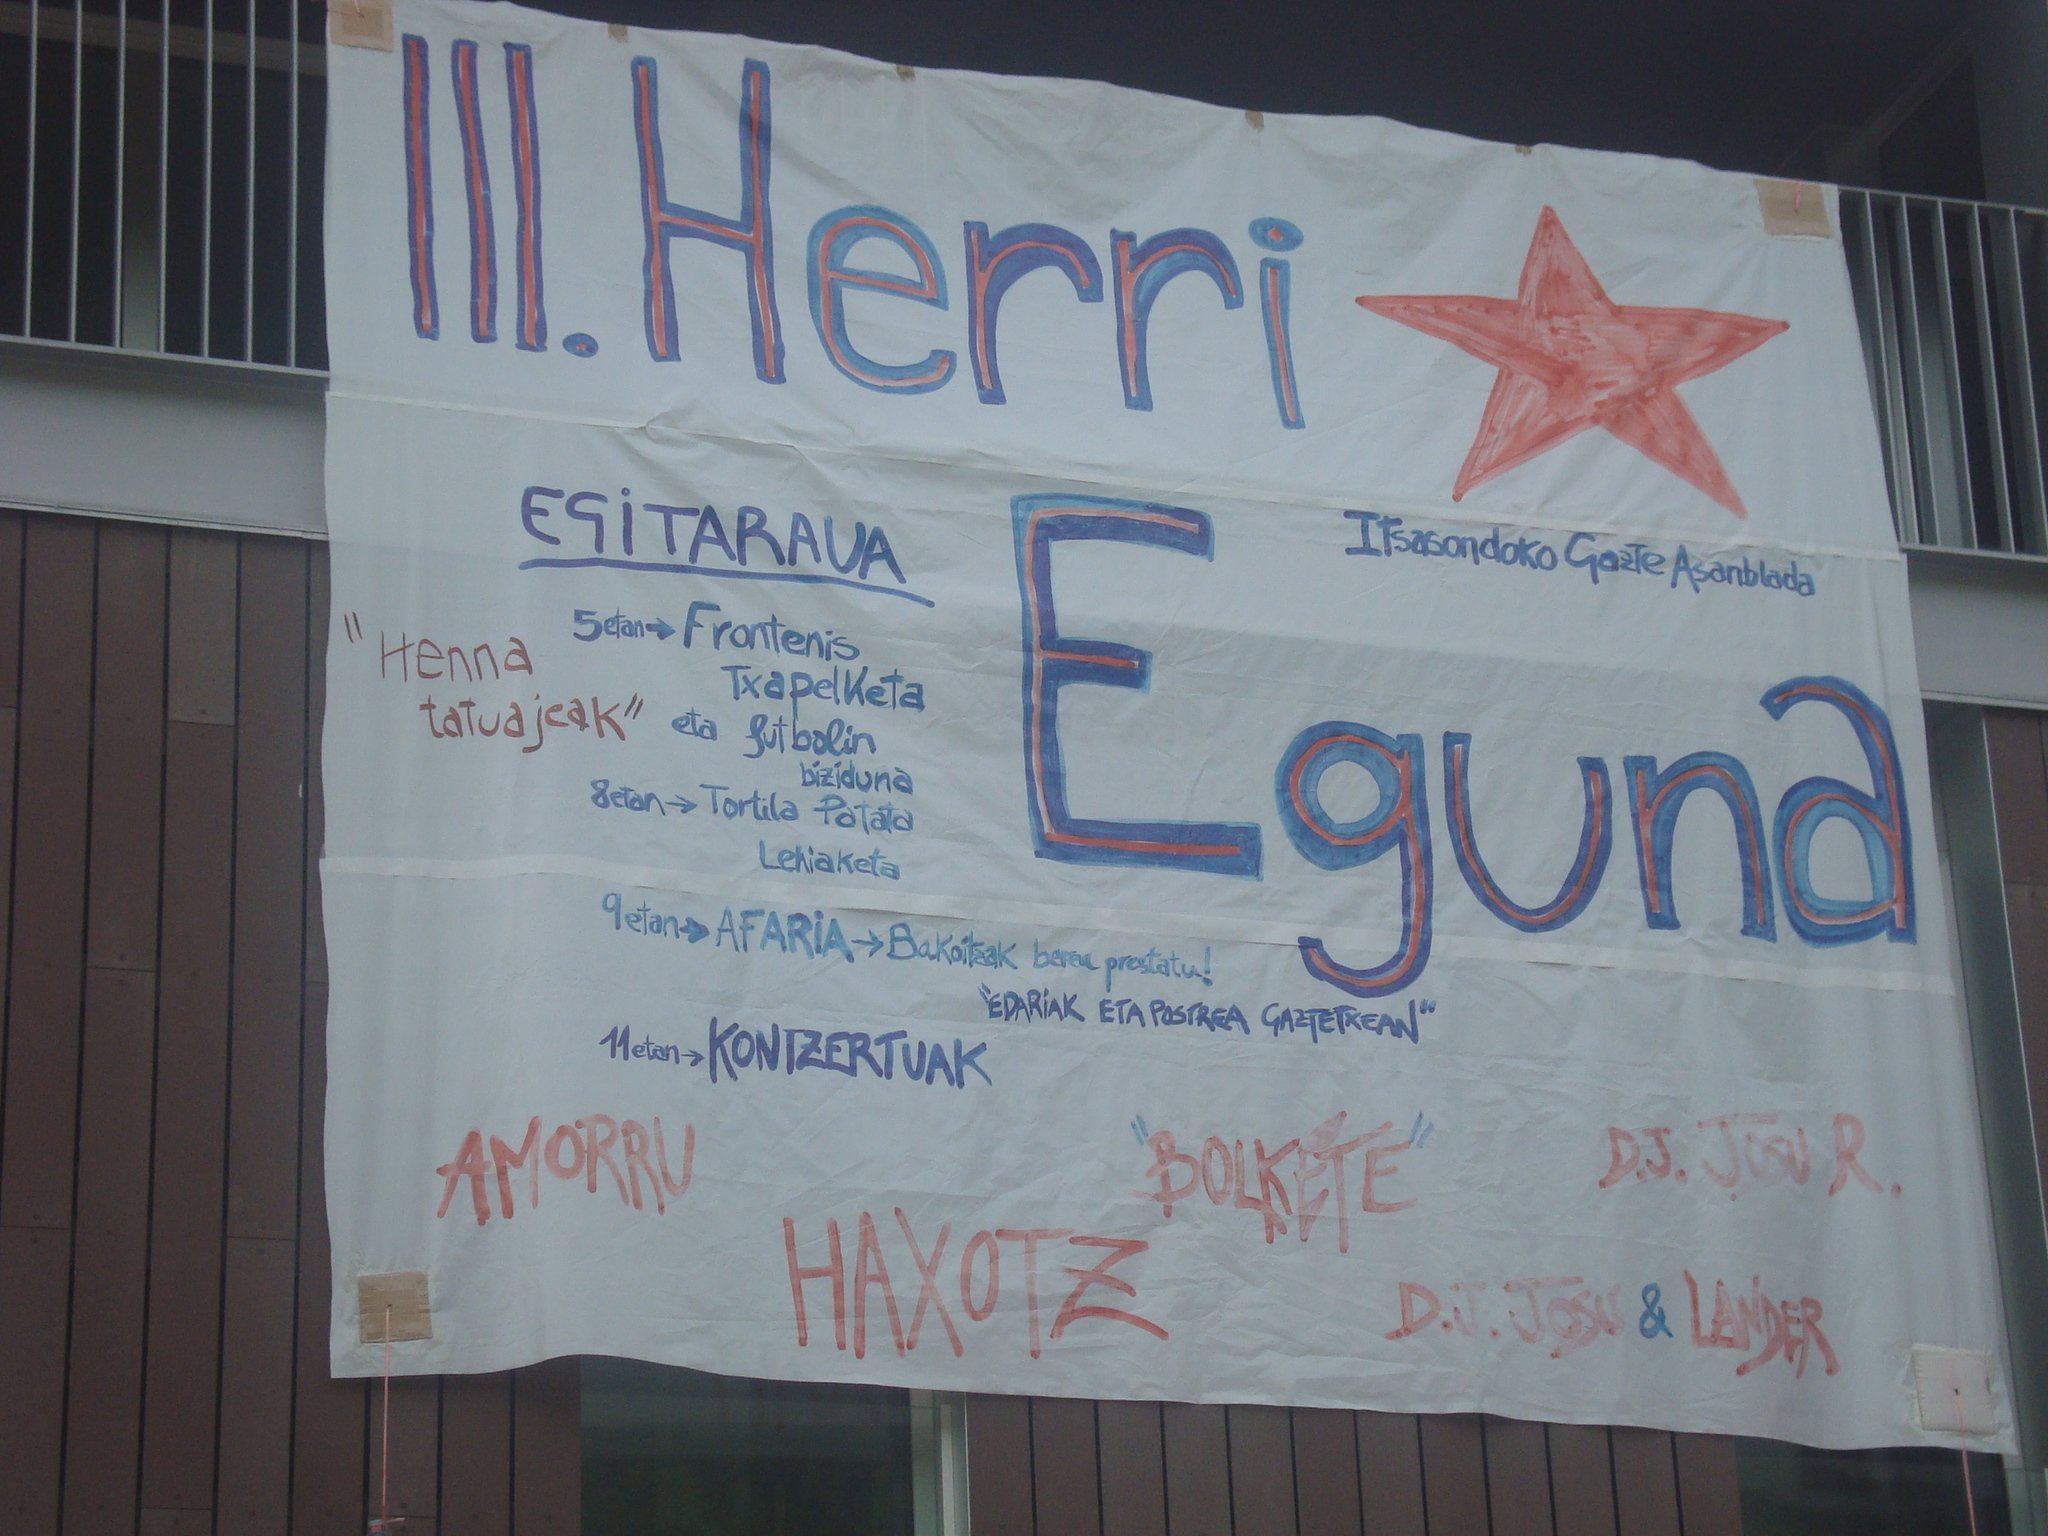 III. Herri
Eguna
Itsasondoko Gazte Asanblada
EGITARAUA
"Henna
tatuajeak"
5etan→ Frontenis
Txapelketa
eta futbolin
biziduna
8etan→ Tortila Patata
Lehiaketa
9etan→ AFARIA→ Bakoitzak berea prestatu!
"EDARIAK ETA POSTREA GAZTETXEAN"
11etan→ KONTZERTUAK
AMORRU
HAXOTZ
"BOLKETE"
D.J. JOSU R.
D.J. JOSU & LANDER